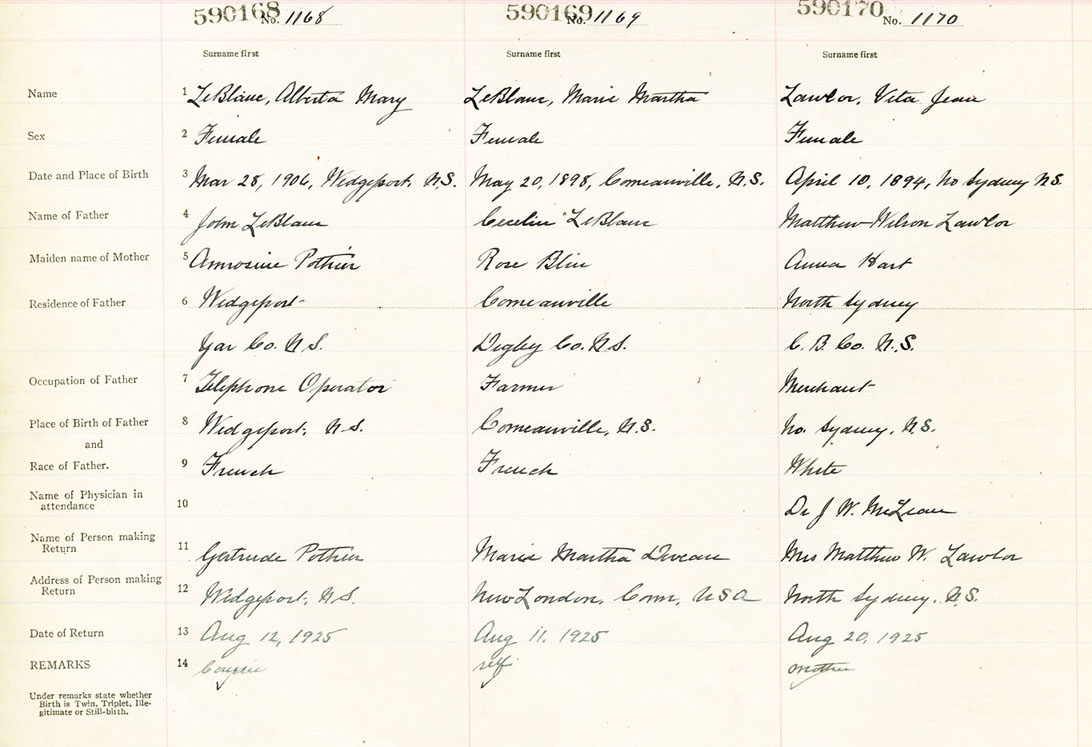 590168 No. 1168 590169 No. 1169 590170 No. 1170
Surname first Surname first Surname first
Name 1 LeBlanc, Alberta Mary LeBlanc, Marie Martha Lawlor, Vita Jean
Sex 2 Female Female Female
Date and Place of Birth 3 Mar 28, 1906, Wedgeport, N.S. May 20, 1898, Comeauville, N.S. April 10, 1894, No Sydney N.S.
Name of Father 4 John LeBlanc LeBlanc Matthew Wilson Lawlor
Maiden name of Mother 5 Pothier Rose Blin Anna Hart
Residence of Father 6 Wedgeport Comeauville North Sydney
Yar Co. N.S. Digby Co. N.S. C. B. Co. N.S.
Occupation of Father 7 Telephone Operator Farmer Merchant
Place of Birth of Father 8 Wedgeport, N.S. Comeauville, N.S. No. Sydney, N.S.
and
Race of Father. 9 French French White
Name of Physician in
attendance 10 Dr J. W. McLean
Name of Person making
Return 11 Gertrude Pothier Marie Martha Deveau Mrs Matthew W. Lawlor
Address of Person making
Return 12 Wedgeport, N.S. New London, Conn, USA North Sydney, N.S.
Date of Return 13 Aug 12, 1925 Aug 11, 1925 Aug 20, 1925
REMARKS 14 Cousin self mother
Under remarks state whether
Birth is Twin, Triplet, Ille-
gitimate or Still-birth.